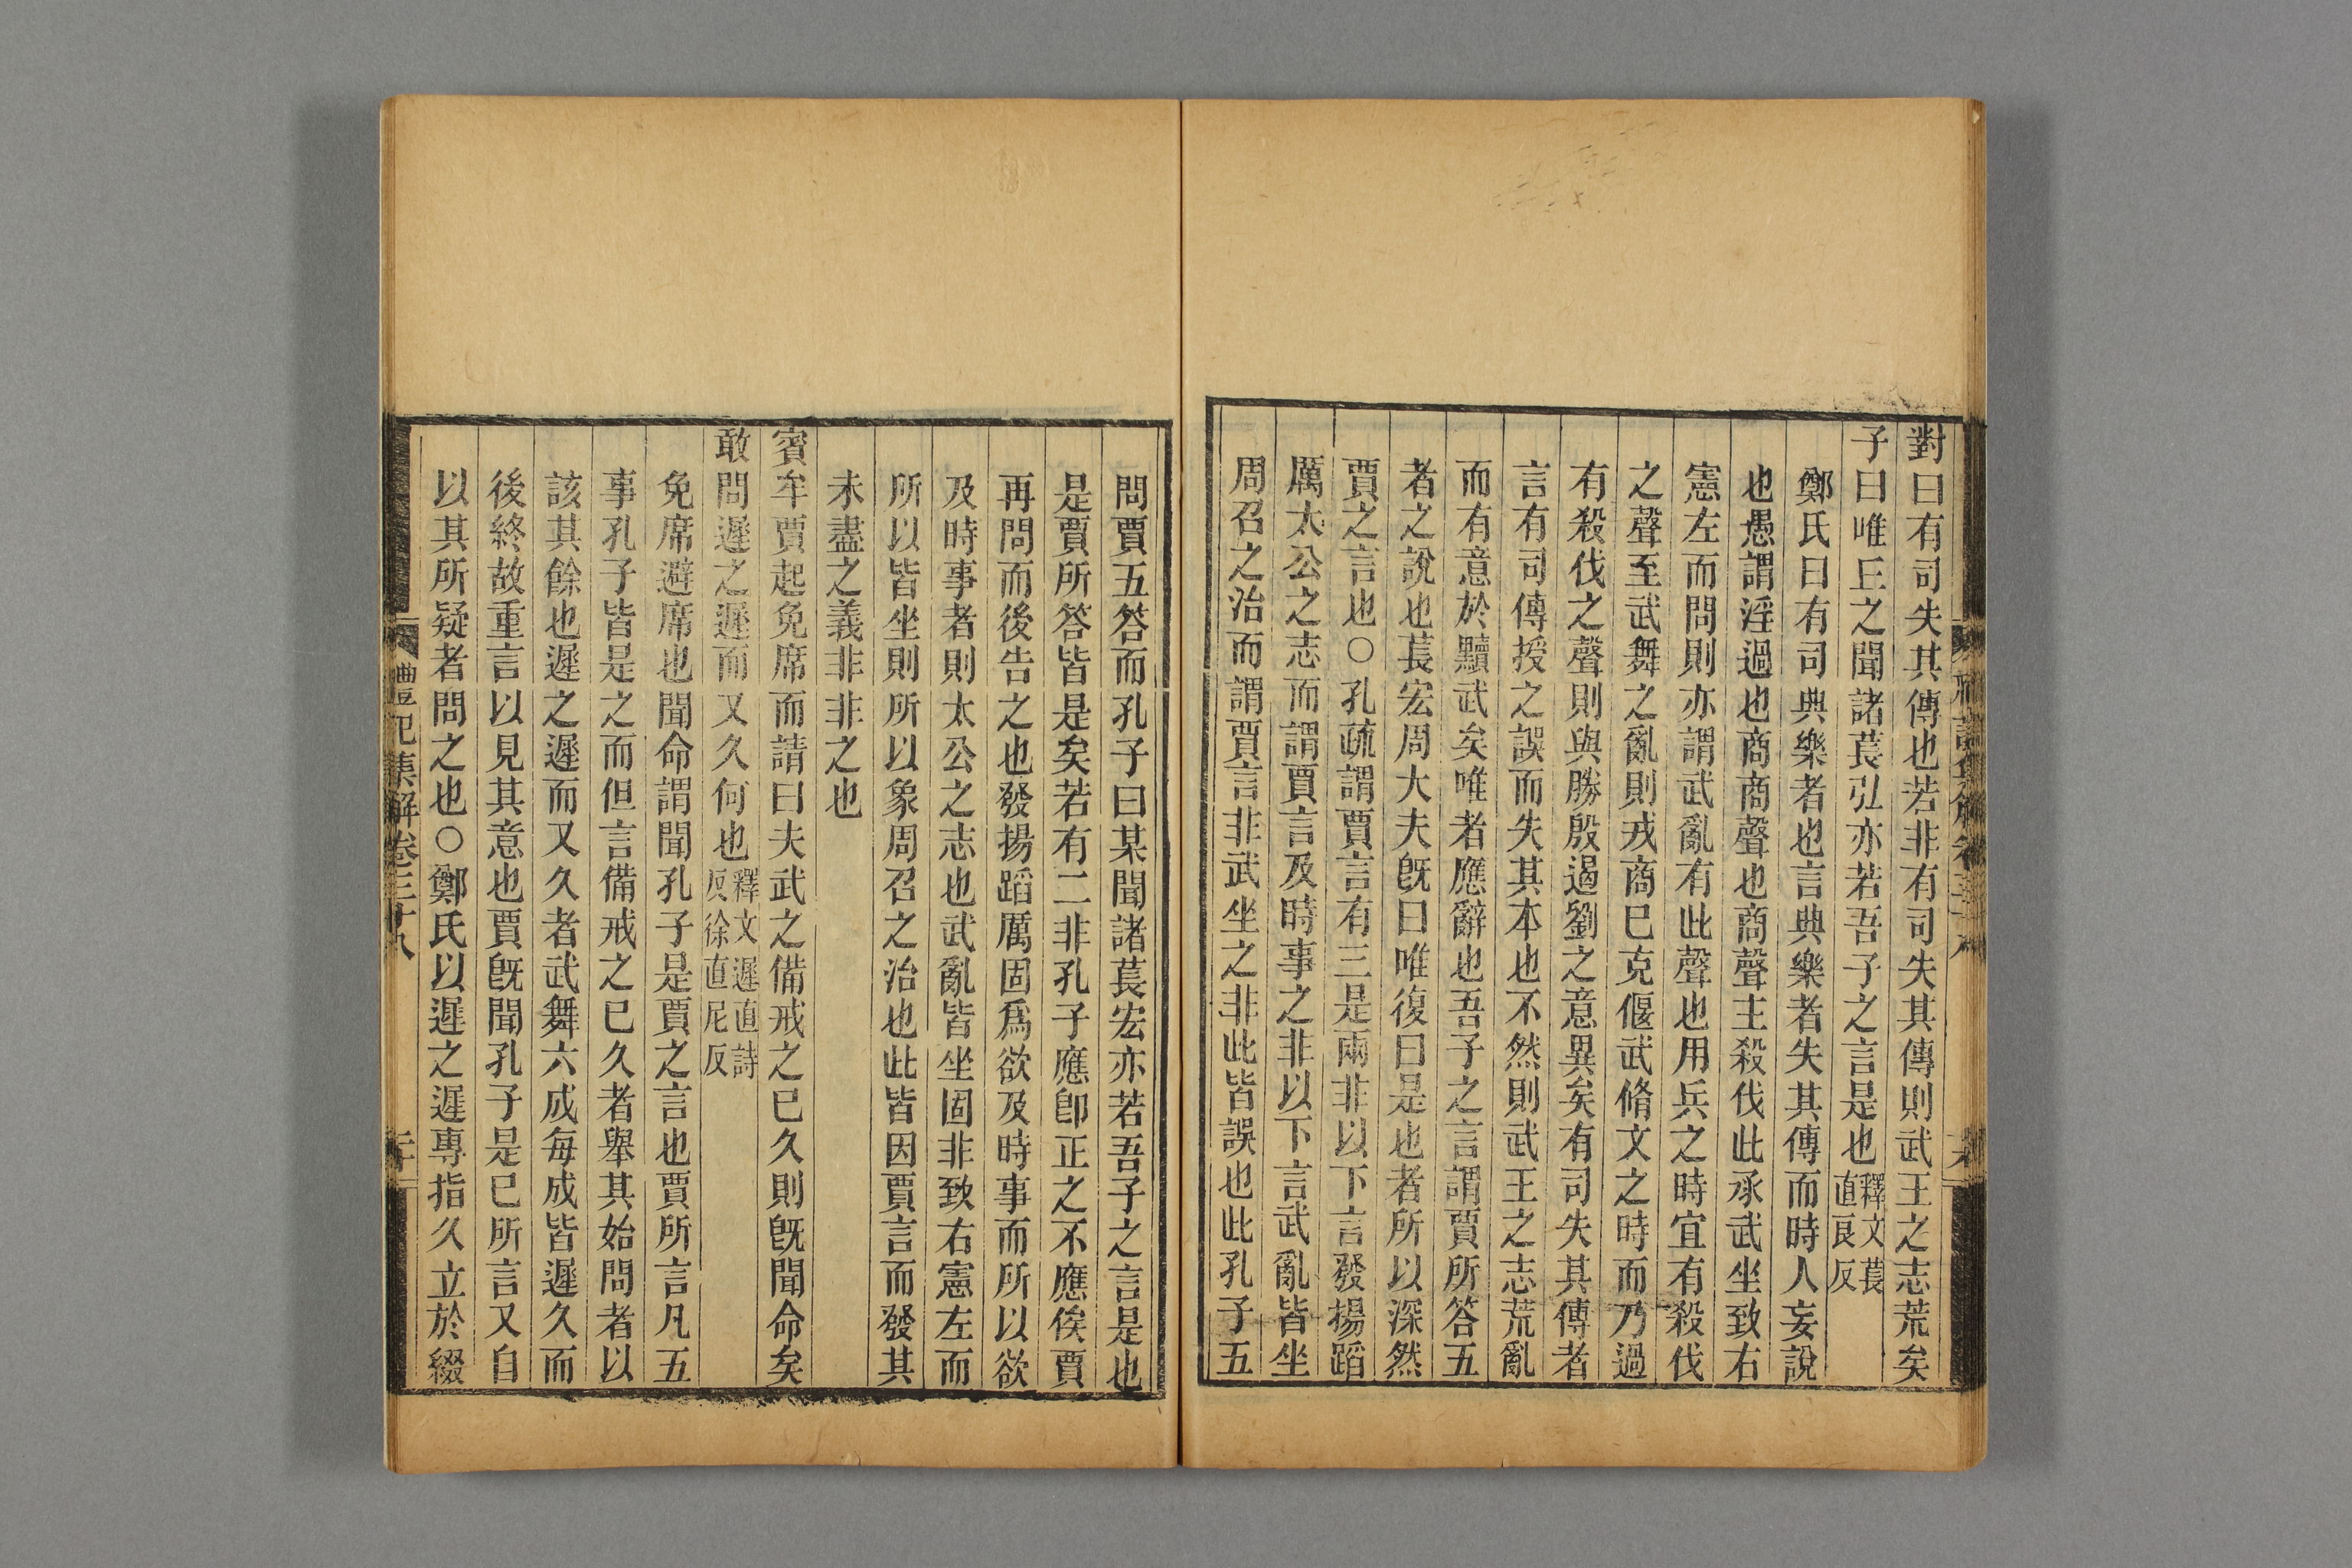 對曰有司失其傳也若非有司失其傳則武王之志荒矣
子曰唯丘之聞諸萇弘亦若吾子之言是也釋文萇直良反
鄭氏曰有司典樂者也言典樂者失其傳而時人妄說
也愚謂淫過也商商聲也商聲主殺伐此承武坐致右
憲左而問則亦謂武亂有此聲也用兵之時宜有殺伐
之聲至武舞之亂則戎商巳克偃武脩文之時而乃過
有殺伐之聲則與勝殷遏劉之意異矣有司失其傳者
言有司傳授之誤而失其本也不然則武王之志荒亂
而有意於黷武矣唯者應辭也吾子之言謂賈所答五
者之說也萇宏周大夫旣曰唯復曰是也者所以深然
賈之言也○孔疏謂賈言有三是兩非以下言發揚蹈
厲太公之志而謂賈言及時事之非以下言武亂皆坐
周召之治而謂賈言非武坐之非此皆誤也此孔子五
問賈五答而孔子曰某聞諸萇宏亦若吾子之言是也
是賈所答皆是矣若有二非孔子應卽正之不應俟賈
再問而後告之也發揚蹈厲固爲欲及時事而所以欲
及時事者則太公之志也武亂皆坐固非致右憲左而
所以皆坐則所以象周召之治也此皆因賈言而發其
未盡之義非非之也
賓牟賈起免席而請曰夫武之備戒之已久則旣聞命矣
敢問遲之遲而又久何也釋文遲直詩反徐直尼反
免席避席也聞命謂聞孔子是賈之言也賈所言凡五
事孔子皆是之而但言備戒之巳久者舉其始問者以
該其餘也遲之遲而又久者武舞六成每成皆遲久而
後終故重言以見其意也賈旣聞孔子是已所言又自
以其所疑者問之也○鄭氏以遲之遲專指久立於綴
禮記集解卷三十八